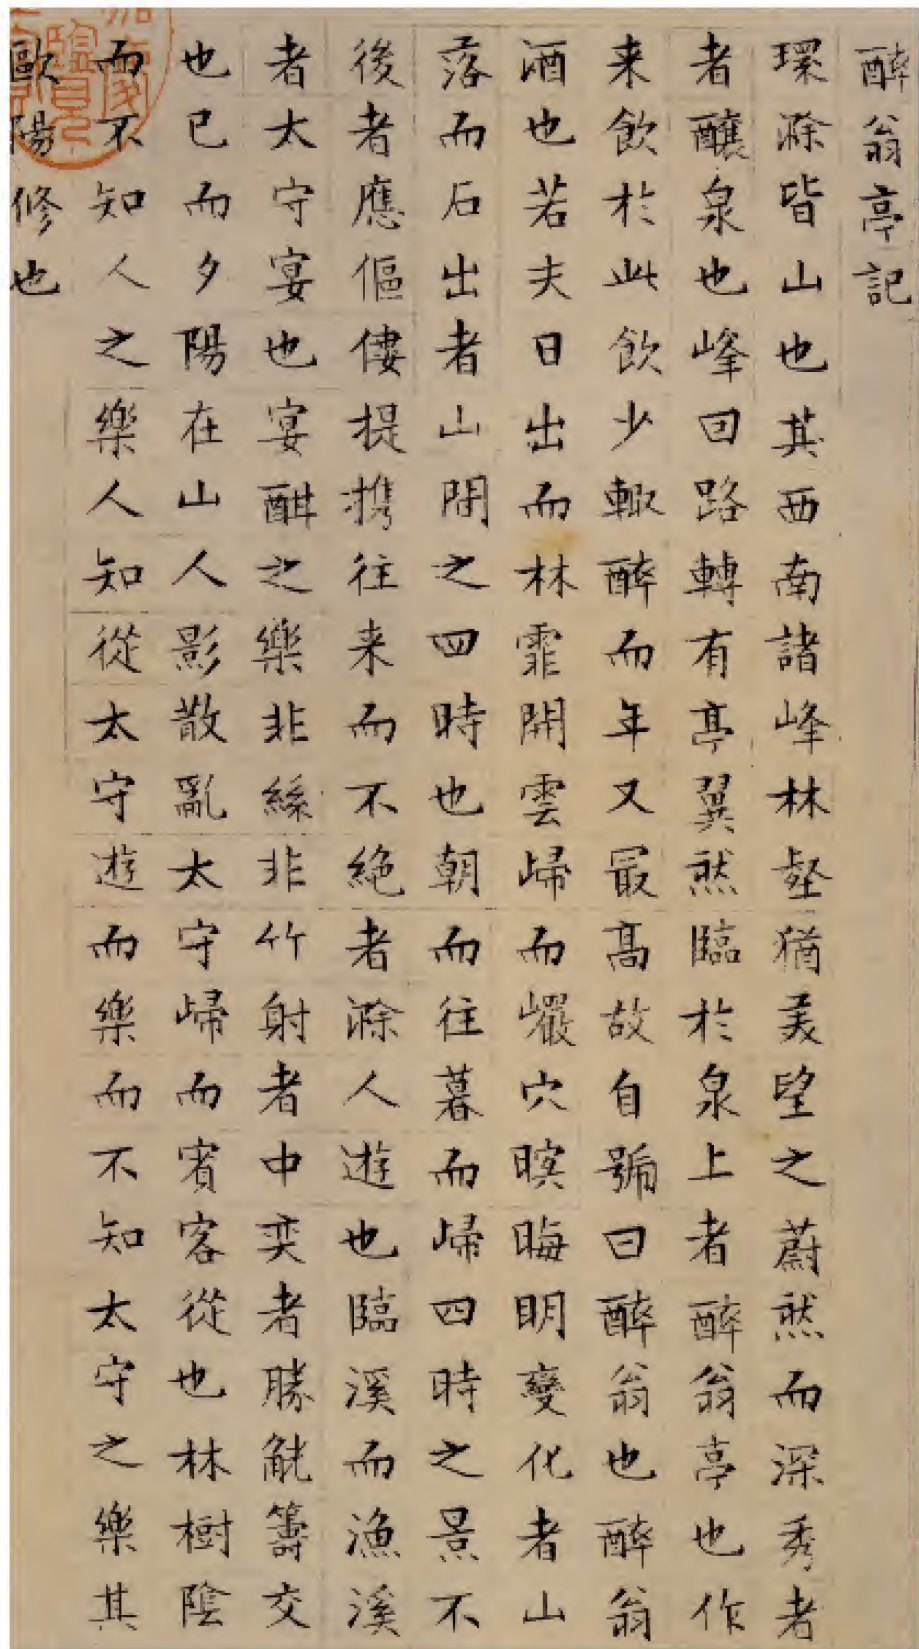 醉翁亭記
環滁皆山也其西南諸峰林壑猶美望之蔚然而深秀者
者釀泉也峰回路轉有亭翼然臨於泉上者醉翁亭也作
来飲於此飲少輙醉而年又最高故自號曰醉翁也醉翁
酒也若夫日出而林霏開雲歸而巖穴暝晦明變化者山
落而石出者山間之四時也朝而往暮而歸四時之景不
後者應傴僂提携往来而不絶者滁人遊也臨溪而漁溪
者太守宴也宴酣之樂非絲非竹射者中奕者勝觥籌交
也已而夕陽在山人影散亂太守歸而賓客從也林樹陰
而不知人之樂人知從太守遊而樂而不知太守之樂其
歐陽修也